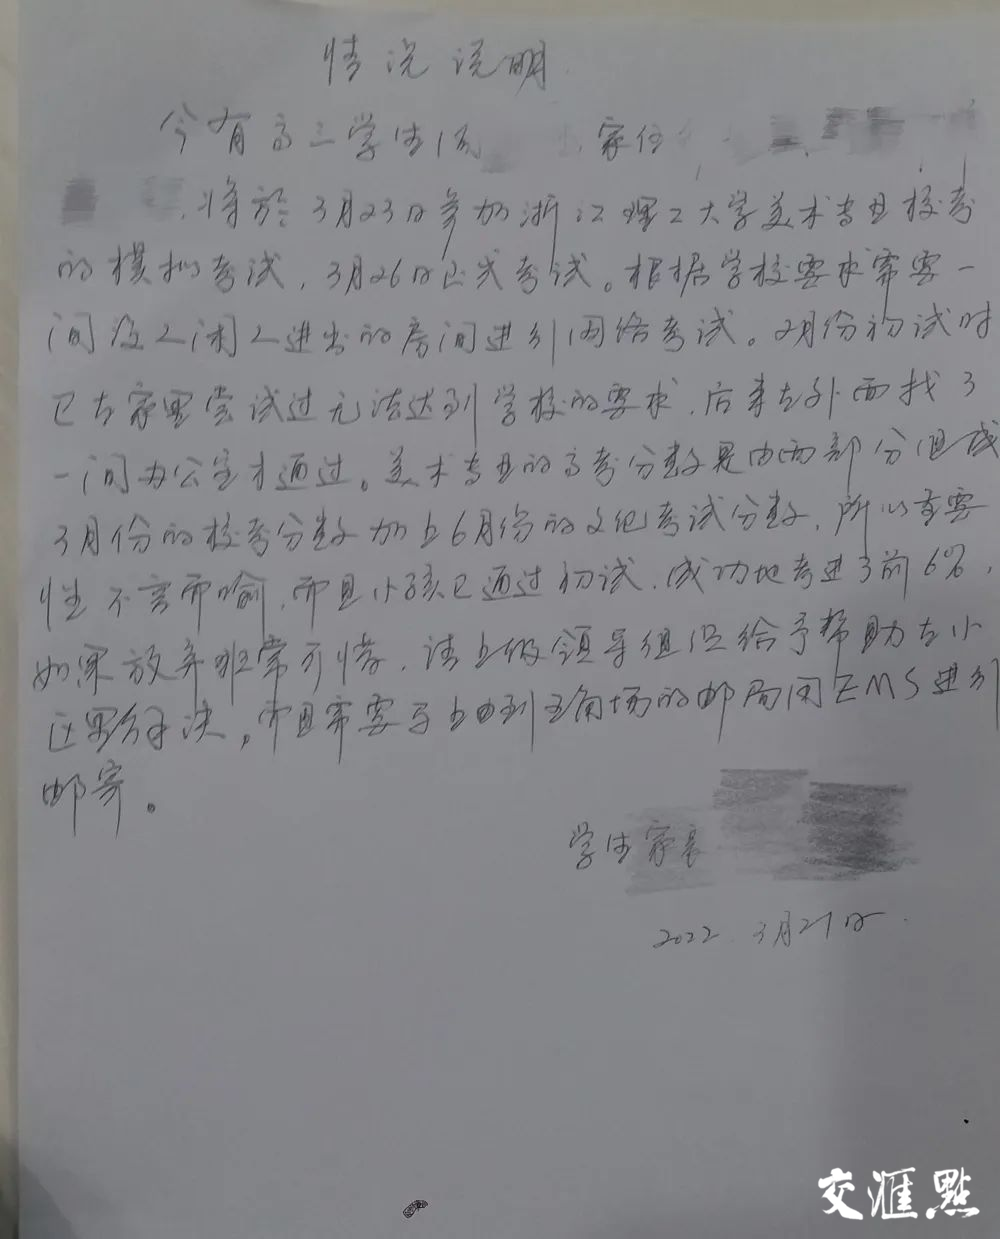 情况说明
今有高三学生 家住
将於3月23日参加浙江理工大学美术专业校考
的模拟考试，3月26日正式考试。根据学校要求需要一
间没人闲人进出的房间进行网络考试。2月份初试时
已在家里尝试过无法达到学校的要求，后来在外面找了
一间办公室才通过。美术专业的高考分数是由两部分组成
3月份的校考分数加上6月份的文化考试分数，所以重要
性不言而喻，而且小孩已通过初试，成功地考进了前6%，
如果放弃非常可惜，请上级领导组织给予帮助在小
区里解决，而且需要 到五角场的邮局用EMS进行
邮寄。
学生家长
2022.3月21日.
交滙點